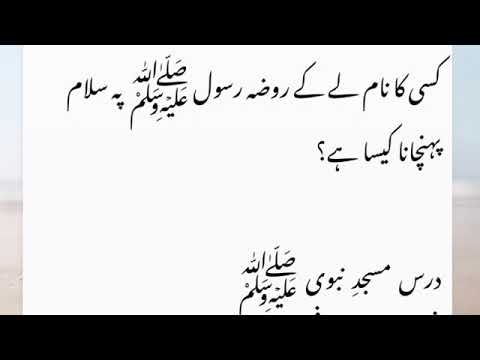 کسی کا نام لے کے روضہ رسول ﷺ پہ سلام
پہنچانا کیسا ہے؟
درس مسجدِ نبوی ﷺ